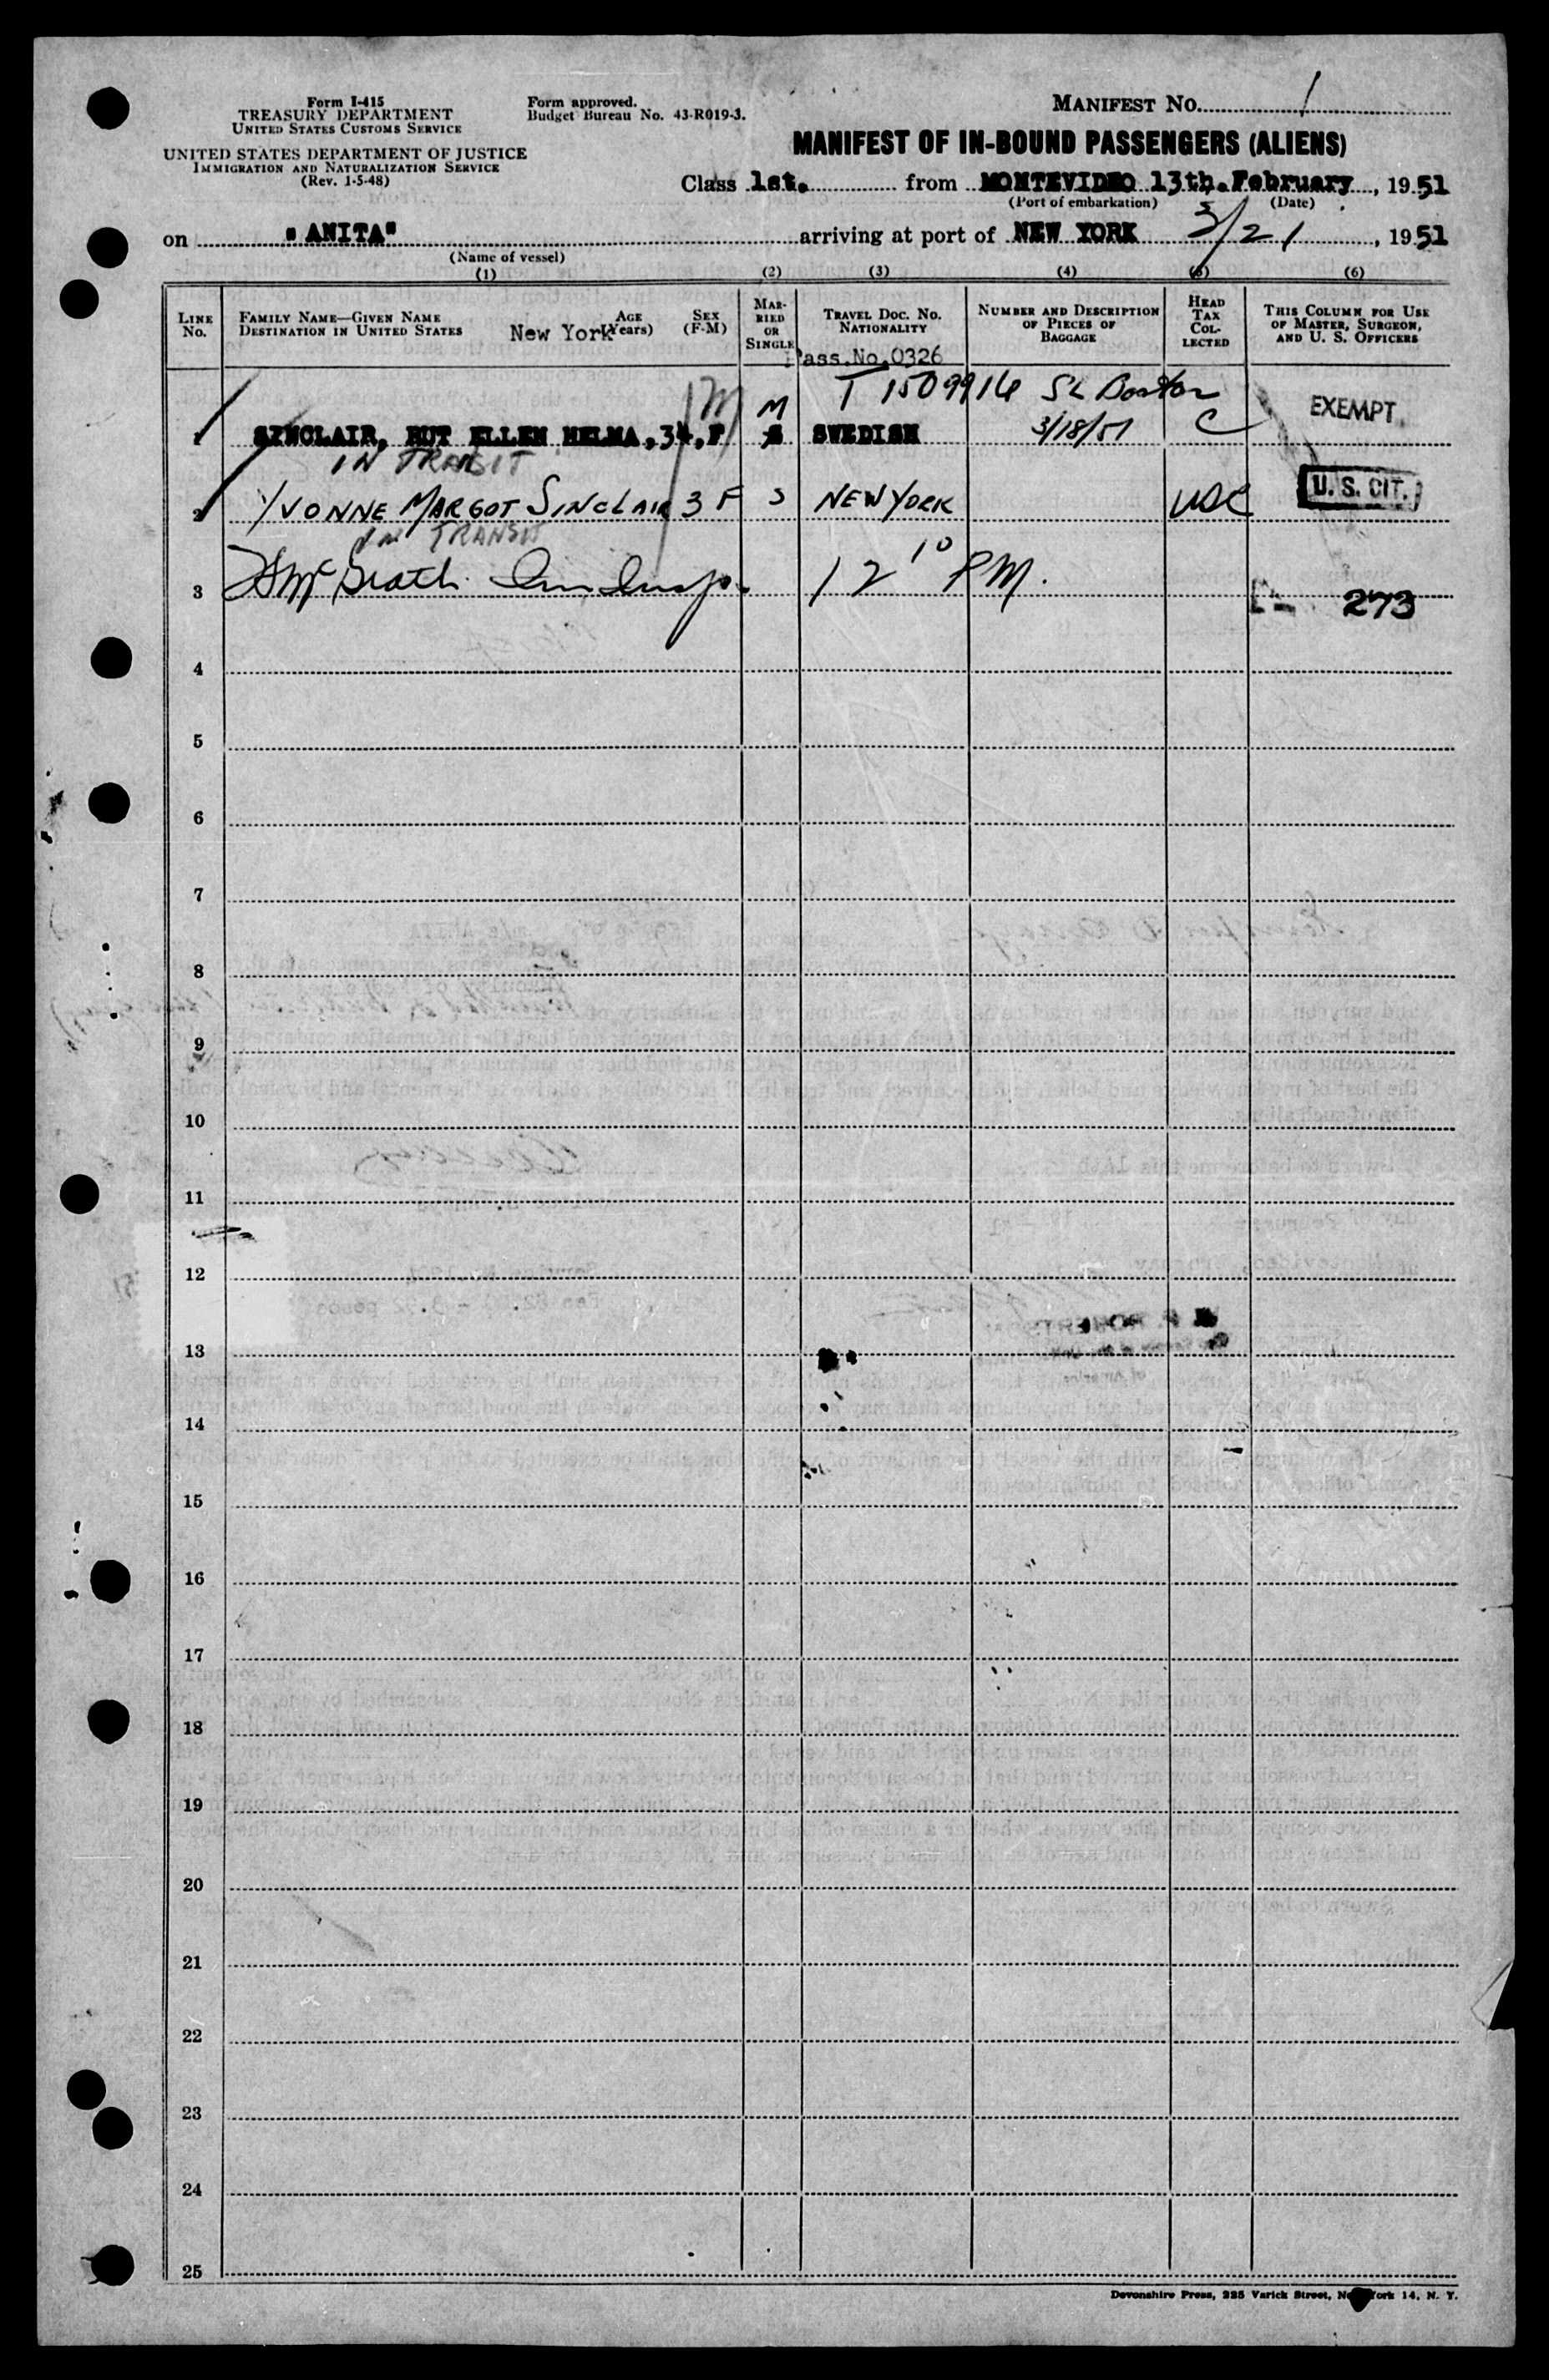 Form I-415
TREASURY DEPARTMENT
UNITED STATES CUSTOMS SERVICE
UNITED STATES DEPARTMENT OF JUSTICE
IMMIGRATION AND NATURALIZATION SERVICE
(Rev. 1-5-48)
Form approved.
Budget Bureau No. 43-R019-3.
MANIFEST NO. 1
MANIFEST OF IN-BOUND PASSENGERS (ALIENS)
Class 1st. from MONTEVIDEO 13th. February, 1951
(Port of embarkation) (Date)
on "ANITA" arriving at port of NEW YORK 3/21, 1951
(Name of vessel)
(1) (2) (3) (4) (5) (6)
LINE NO.
FAMILY NAME—GIVEN NAME
DESTINATION IN UNITED STATES New York
AGE (Years)
SEX (F-M)
MARRIED OR SINGLE
TRAVEL DOC. NO.
NATIONALITY
Pass.No.0326
NUMBER AND DESCRIPTION OF PIECES OF BAGGAGE
HEAD TAX COLLECTED
THIS COLUMN FOR USE OF MASTER, SURGEON, AND U. S. OFFICERS
M T 1509916 SL Boston
1 SINCLAIR, RUT ELLEN HELMA, 34, F S SWEDISH 3/18/51 C EXEMPT
IN TRANSIT
2 YVONNE MARGOT SINCLAIR 3 F S NEW YORK USC U. S. CIT.
IN TRANSIT
3 12 10 PM. 273
4
5
6
7
8
9
10
11
12
13
14
15
16
17
18
19
20
21
22
23
24
25
Devonshire Press, 225 Varick Street, New York 14, N. Y.